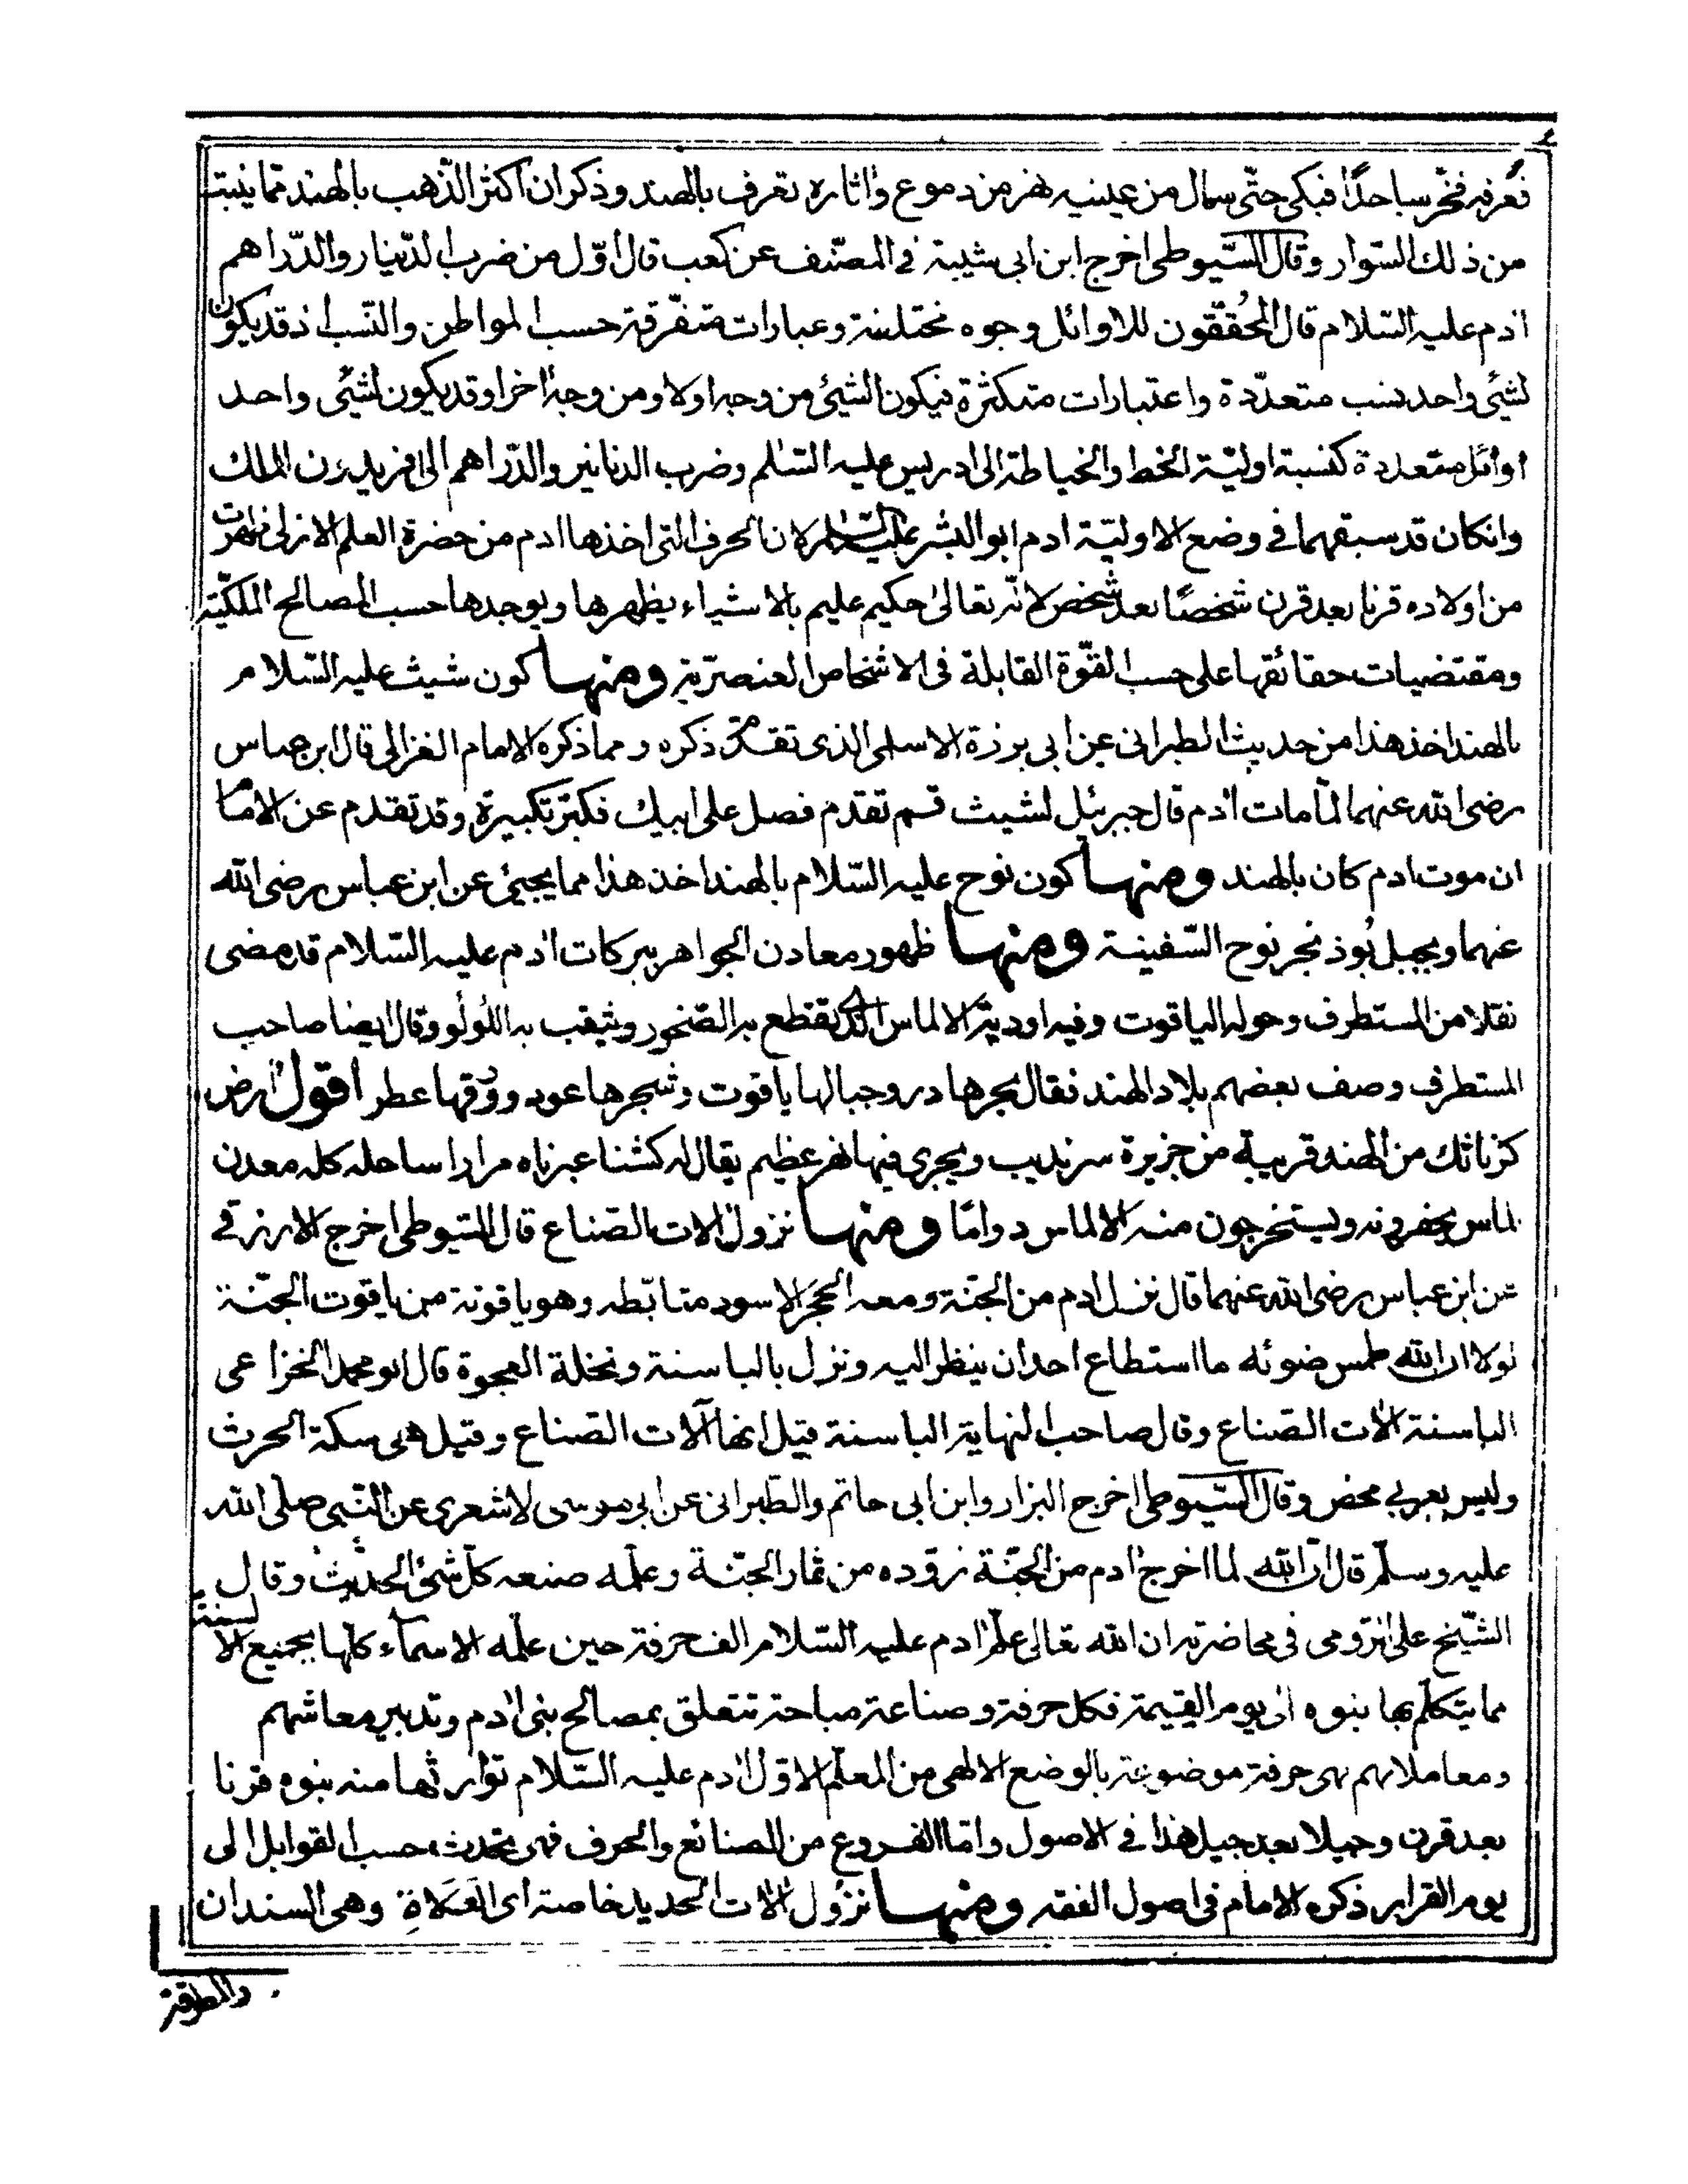 فعرفه فخرّ ساجدًا فبكى حتّى سال من عينيه نهر من دموع واٰثاره تعرف بالهند وذكر ان اكثر الذّهب بالهند مما ينبت
من ذلك السّوار وقال السّيوطى اخرج ابن ابى شيبة فے المصنّف عن كعب قال اوّل من ضرب الدّينار والدّراهم
اٰدم عليه السّلام قال المحُققون للاوائل وجوه مختلفة وعبارات متفرّقة حسب المواطن والنّسب اذ قد يكون
لشئ واحد نسب متعدّدة واعتبارات متكثرة فيكون الشئ من وجه اولا ومن وجهٍ اٰخرا وقد يكون لشئ واحد
اوائل متعددة كنسبة اوليّة الخط والخياطة الى ادريس عليه السّلم وضرب الدنانير والدّراهم الى افريدون الملك
وانكان قد سبقهما في وضع الاوليّة ادم ابو البشر عليه السّلام لان الحرف التى اخذها ادم من حضرة العلم الازلى ظهرت
من اولاده قرنا بعد قرن شخصًا بعد شخص لانّه تعالىٰ حكيم عليم بالاشياء يظهرها ويوجدها حسب المصالح الملكيّة
ومقتضيات حقائقها على حسب القوّة القابلة فى الاشخاص العنصريّة ومنها كون شيث عليه السّلام
بالهند اخذ هذا من حديث الطبرانى عن ابى برزة الاسلمى الذى تقدّم ذكره ومما ذكره الامام الغزالى قال ابن عباس
رضى الله عنهما لمّا مات اٰدم قال جبرئيل لشيث قم تقدم فصل على ابيك فكبّر تكبيرة وقد تقدم عن الامام
ان موت ادم كان بالهند ومنها كون نوح عليه السّلام بالهند اخذ هذا مما يجيئ عن ابن عباس رضى الله
عنهما وبجبل بُوذ نجر نوح السّفينة ومنها ظهور معادن الجواهر ببركات اٰدم عليه السّلام قد مضى
نقلا من المستطرف وحوله الياقوت وفيه اوديتہ الالماس الذى يقطع به الصّخور ويثقب به اللّولو وقال ايضا صاحب
المستطرف وصف بعضهم بلاد الهند فقال بحرها در وجبالها ياقوت وشجرها عود وورقها عطر اقول ارض
كرناتك من الهند قريبة من جزيرة سرنديب ويجرى فيها نهر عظيم يقال له كشنا عبرناه مرارا ساحله كله معدن
لماس يحفرونه ويستخرجون منه الالماس دوامًا ومنها نزول اٰلات الصّناع قال السّيوطى اخرج الازرقے
عن ابن عباس رضى الله عنهما قال نزل ادم من الجنّة ومعه الحجَر الاسود متابّطه وهو ياقوتة من ياقوت الجنّة
لولا ان الله طمس ضوئه ما استطاع احد ان ينظر اليه ونزل بالباسنة ونخلة العجوة قال ابو محمد الخزاعى
الباسنة اٰلات الصّناع وقال صاحب النهاية الباسنة قيل انها آلات الصّناع وقيل هى سكة الحرث
وليس بعربے محض وقال السّيوطى اخرج البزار وابن ابى حاتم والطّبرانى عن ابى موسى الاشعرى عن النّبى صلى الله
عليه وسلّم قال انّ الله لما اخرج اٰدم من الجنّة زوّده من ثمار الجنّة وعلّمه صنعه كلّ شئ الحديث وقال
الشّيخ على الرّومى فى محاضرته ان الله تعالى علّم اٰدم عليه السّلام الف حرفة حين علّمه الاسماء كلها بجميع الالسنة
مما يتكلّم بها بنوه الى يوم القيٰمة فكل حرفة وصناعة مباحة تتعلق بمصالح بنى اٰدم وتدبير معاشهم
ومعاملاتهم هى حرفة موضوعة بالوضع الالهى من المعلّم الاوّل اٰدم عليه السّلام توارثها منه بنوه قرنا
بعد قرن وجيلا بعد جيل هٰذا فے الاصول وامّا الفروع من الصنائع والحرف فهى تحدث حسب القوابل الى
يوم القرار ذكره الامام فى اصول الفقه ومنها نزول اٰلات الحديد خاصة اى العَلاةِ وهى السندان
والمطرقة